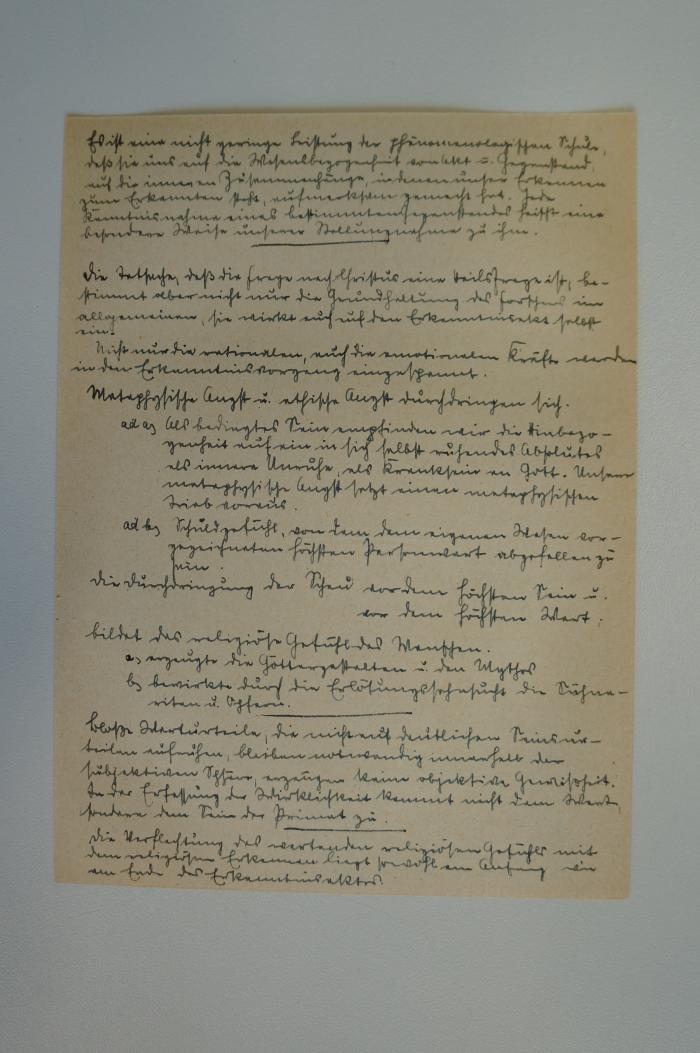 Es ist eine nicht geringe Leistung der phänomenologischen Schule,
daß sie uns auf die Wesensbezogenheit von Akt u. Gegenstand,
auf die inneren Zusammenhänge, in denen unser Erkennen
zum Erkannten steht, aufmerksam gemacht hat. Jede
Kenntnisnahme eines bestimmten Gegenstandes heißt eine
besondere Weise unserer Stellungnahme zu ihm.
Die Tatsache, daß die Frage nach Christus eine Heilsfrage ist, be-
stimmt aber nicht nur die Grundhaltung des Forschens im
allgemeinen, sie wirkt auch auf den Erkenntnisakt selbst
ein.
Nicht nur die rationalen, auch die emotionalen Kräfte werden
in den Erkenntnisvorgang eingespannt.
Metaphysische Angst u. ethische Angst durchdringen sich.
ad a) Als bedingtes Sein empfinden wir die Hinbezo-
genheit auf ein in sich selbst ruhendes Absolutes
als innere Unruhe, als Kranksein an Gott. Unsere
metaphysische Angst setzt einen metaphysischen
Trieb voraus.
ad b) Schuldgefühl, von dem dem eigenen Wesen vor-
gezeichneten höchsten Personwert abgefallen zu
sein.
Die Durchdringung der Scheu vor dem höchsten Sein u.
vor dem höchsten Wert,
bildet das religiöse Gefühl des Menschen.
a) erzeugte die Göttergestalten u. den Mythos
b) bewirkte durch die Erlösungssehnsucht die Sühne-
riten u. Opfern.
Bloße Werturteile, die nicht auf deutlichen Seinsur-
teilen aufruhen, bleiben notwendig innerhalb der
subjektiven Sphäre, erzeugen keine objektive Gewissheit.
In der Erfassung der Wirklichkeit kommt nicht dem Wert,
sondern dem Sein der Primat zu.
Die Verflechtung des wertenden religiösen Gefühls mit
dem religiösen Erkennen liegt sowohl am Anfang wie
am Ende des Erkenntnisaktes.